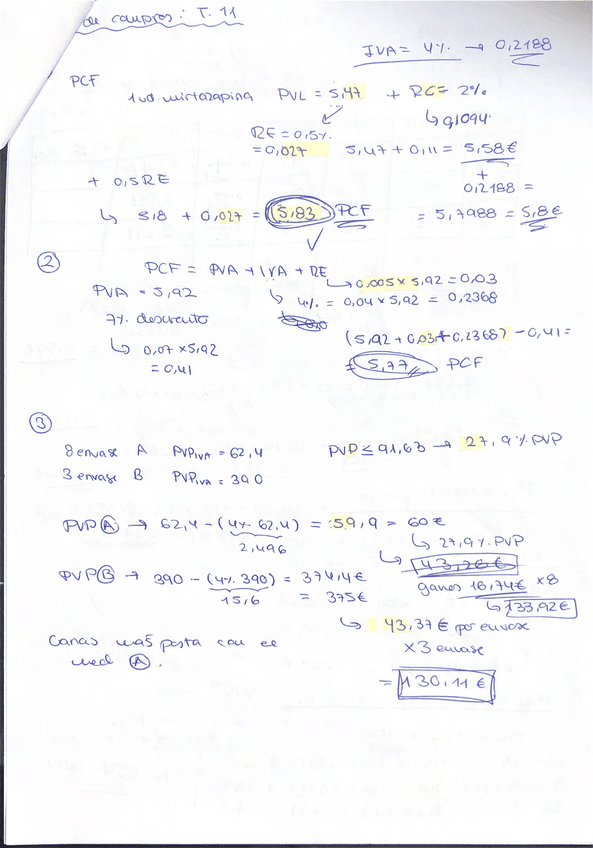 de compras: T. 11
IVA = 4% → 0,2188
PCF
1ud mirtazapina PVL = 5,47 + RC = 2%
↳ 0,1094
RE = 0,5%
= 0,027
5,47 + 0,11 = 5,58 €
+
0,2188 =
= 5,7988 = 5,8 €
+ 0,5 RE
↳ 5,8 + 0,027 = 5,83 PCF
②
PCF = PVA + IVA + RE
↳ 0.005 x 5,92 = 0,03
PVA = 5,92
↳ 4% = 0,04 x 5,92 = 0,2368
7% descuento
↳ 0,07 x 5,92
= 0,41
(5,92 + 0,03 + 0,2368) - 0,41 =
= 5,77 PCF
③
8 envase A PVPIVA = 62,4
PVP ≤ 91,63 → 27,9% PVP
3 envase B PVPIVA = 390
PVP Ⓐ → 62,4 - (4% 62,4) = 59,9 = 60 €
2,496
↳ 27,9% PVP
↳ 43,26 €
ganas 16,74€ x8
↳ 133,92€
PVP Ⓑ → 390 - (4% 390) = 374,4€
15,6
= 375€
↳ 43,37 € por envase
x 3 envase
= 130,11 €
Ganas más pasta con el
med Ⓐ.